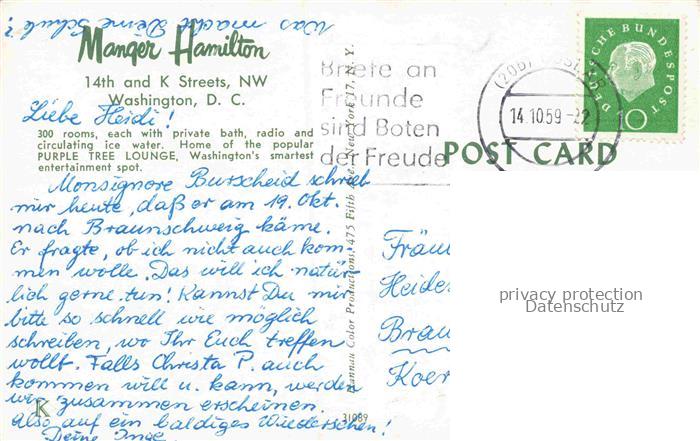 Was macht Deine Schule?
Manger Hamilton
14th and K Streets, NW
Washington, D. C.
Liebe Heidi!
300 rooms, each with private bath, radio and
circulating ice water. Home of the popular
PURPLE TREE LOUNGE, Washington's smartest
entertainment spot.
Monsignore Burscheid schrieb
mir heute, daß er am 19. Okt.
nach Braunschweig käme.
Er fragte, ob ich nicht auch kom-
men wolle. Das will ich natür-
lich gerne tun! Kannst Du mir
bitte so schnell wie möglich
schreiben, wo Ihr Euch treffen
wollt. Falls Christa P. auch
kommen will u. kann, werden
wir zusammen erscheinen.
Also auf ein baldiges Wiedersehen!
Deine Inge
K
31089
Color Productions, 475 Fifth New York 17, N. Y.
Briefe an
Freunde
sind Boten
der Freude
(20b)
14.10.59
DEUTSCHE BUNDESPOST
10
POST CARD
Fräu
Heide
Brau
Koer
privacy protection
Datenschutz